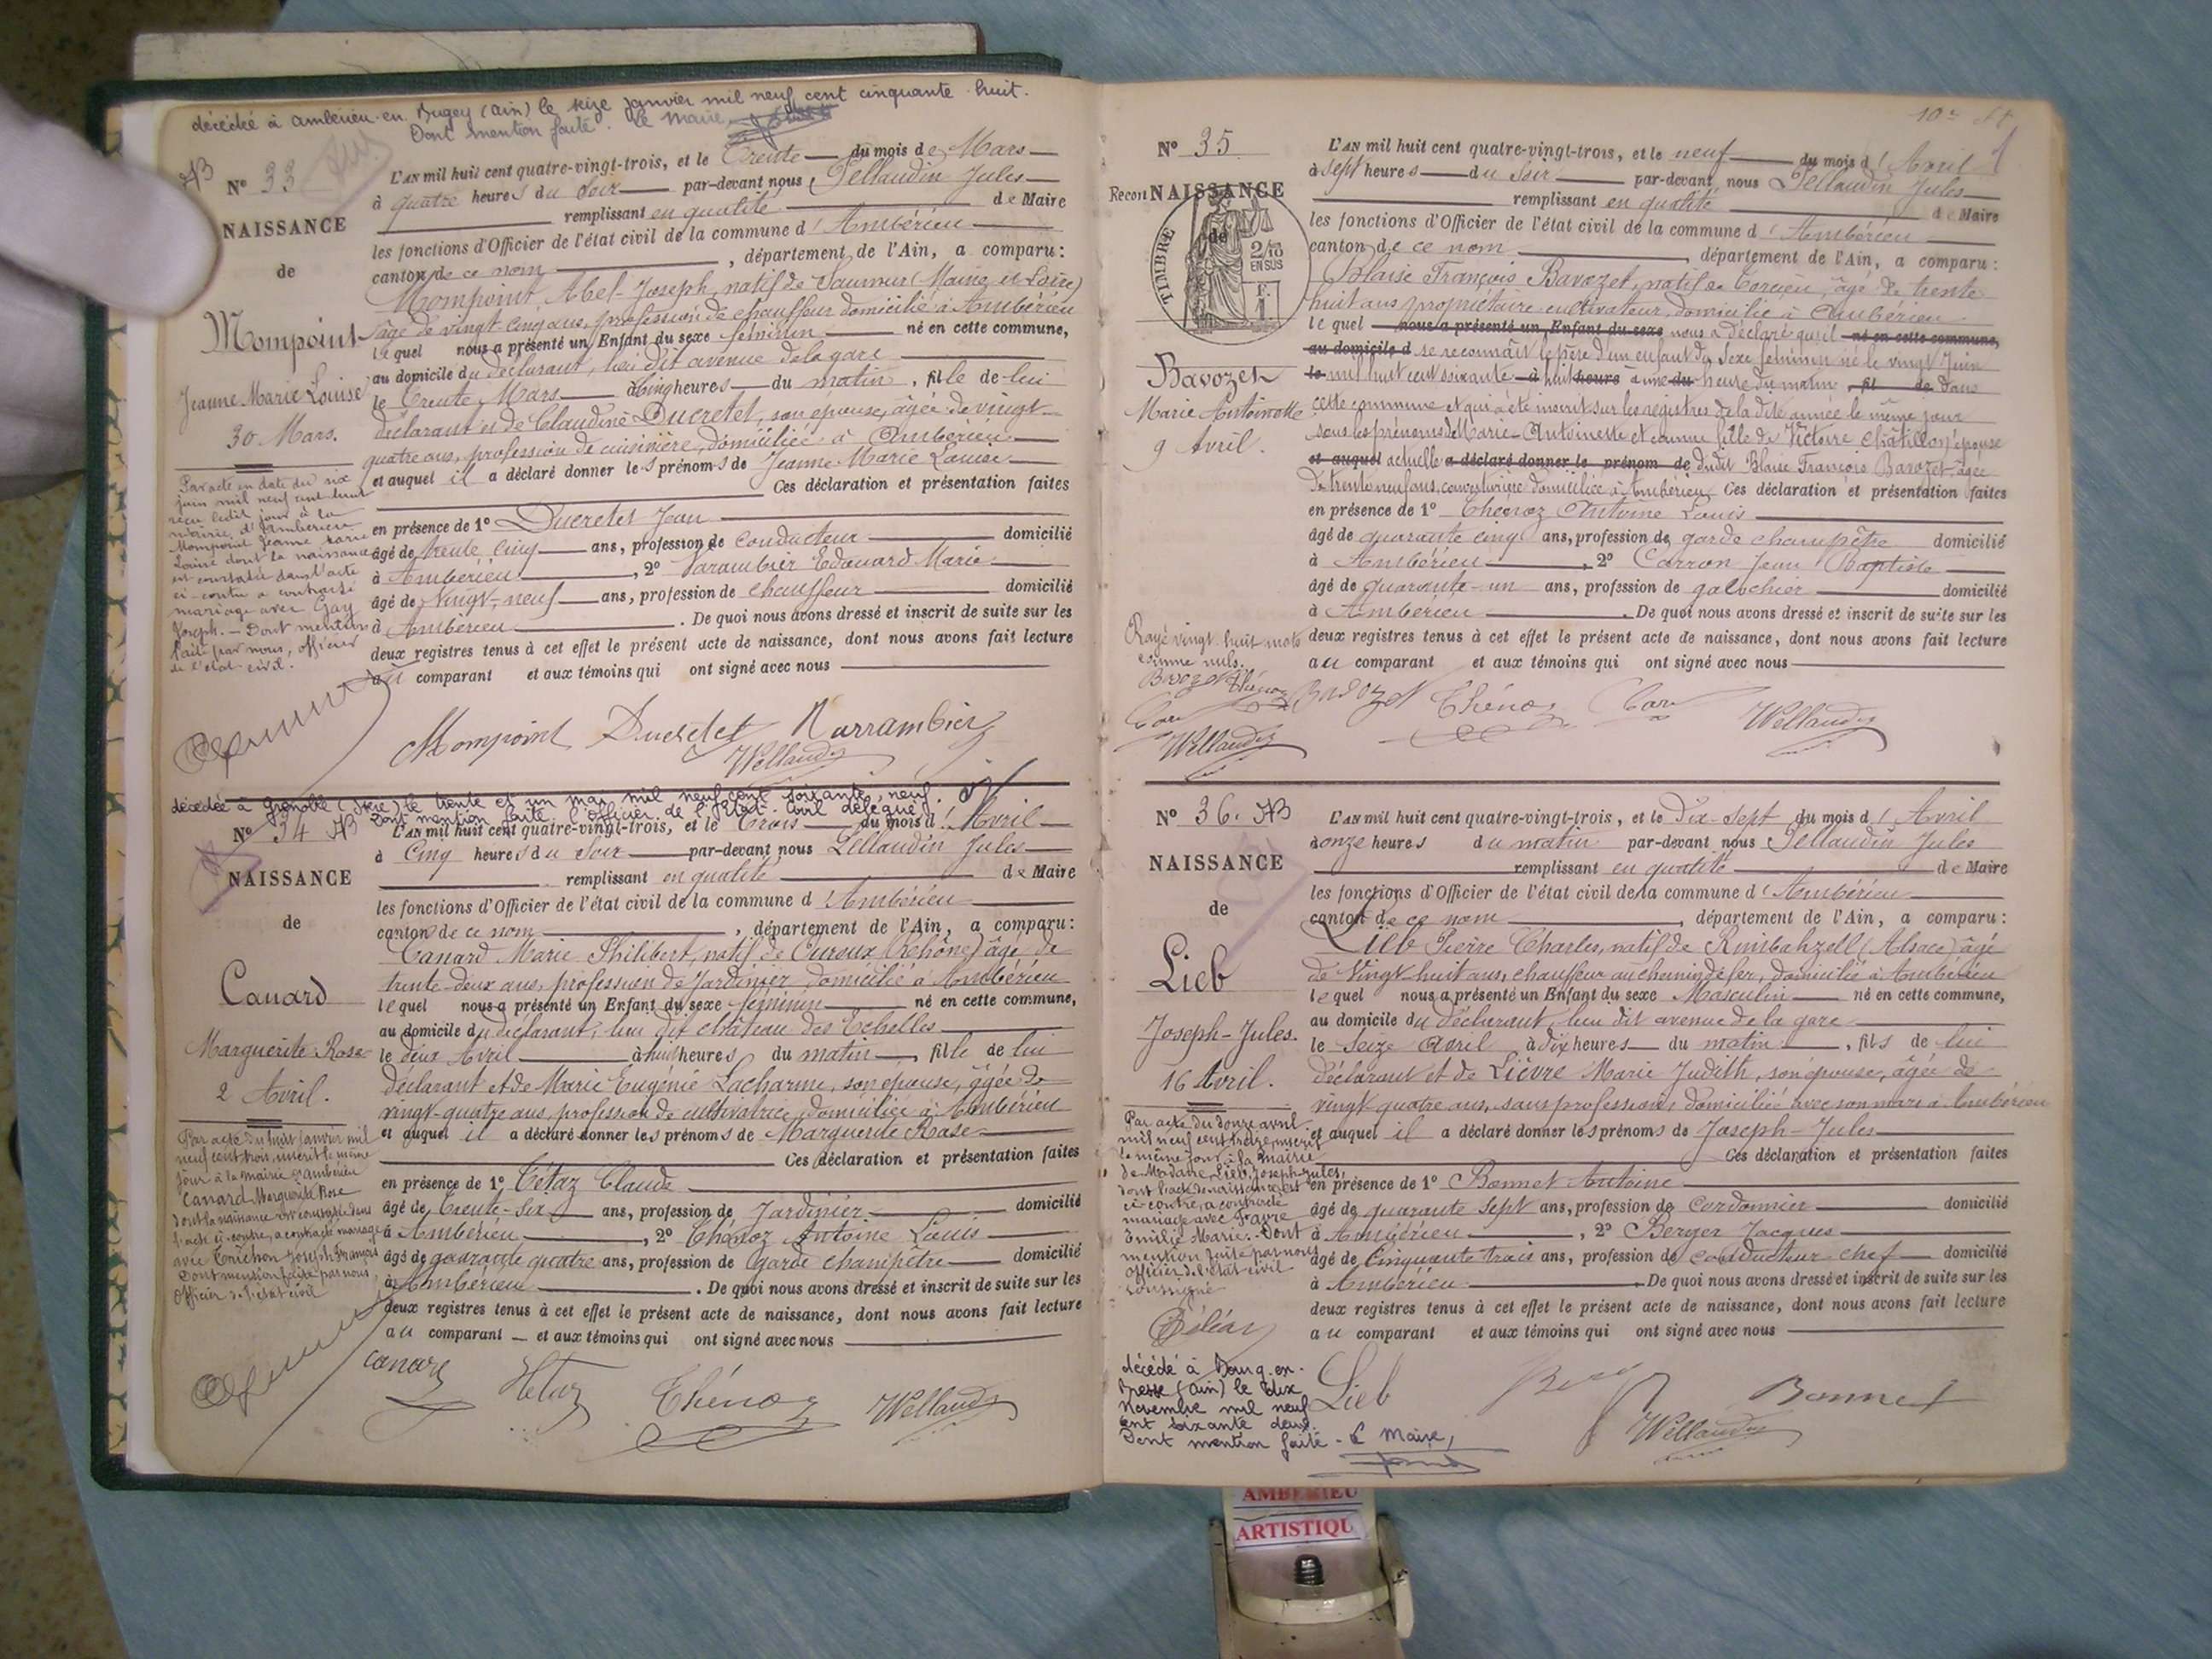 décédée à Ambérieu-en-Bugey (Ain) le seize Janvier mil neuf cent cinquante-huit.
Dont mention faite. Le Maire,
N° 33
NAISSANCE
de
Mompoint
Jeanne Marie Louise
30 Mars.
Par acte en date du six
juin mil neuf cent
reçu ledit jour à la
mairie d'Ambérieu
Mompoint Jeanne Marie
Louise dont la naissance
est constatée dans l'acte
ci-contre a contracté
mariage avec Gay
Joseph. - Dont mention
faite par nous, officier
de l'état civil.
L'AN mil huit cent quatre-vingt-trois, et le Trente du mois de Mars
à quatre heures du Soir par-devant nous Pellaudin Jules
remplissant en qualité de Maire
les fonctions d'Officier de l'état civil de la commune d'Ambérieu
canton de ce nom, département de l'Ain, a comparu:
Mompoint, Abel-Joseph, natif de Saumur (Maine et Loire)
âgé de vingt cinq ans, profession de chauffeur domicilié à Ambérieu
lequel nous a présenté un Enfant du sexe féminin né en cette commune,
au domicile du déclarant, lieu dit avenue de la gare
le Trente Mars à Cinq heures du matin, fille de lui
déclarant et de Claudine Ducretet, son épouse, âgée de vingt
quatre ans, profession de cuisinière, domiciliée à Ambérieu
et auquel il a déclaré donner les prénoms de Jeanne Marie Louise
Ces déclaration et présentation faites
en présence de 1° Ducretet Jean
âgé de trente cinq ans, profession de conducteur domicilié
à Ambérieu, 2° Varambier Edouard Marie
âgé de vingt-neuf ans, profession de chauffeur domicilié
à Ambérieu. De quoi nous avons dressé et inscrit de suite sur les
deux registres tenus à cet effet le présent acte de naissance, dont nous avons fait lecture
au comparant et aux témoins qui ont signé avec nous
Mompoint Ducretet Varrambier
décédée à Grenoble (Isère) le trente et un mai mil neuf cent soixante neuf.
Dont mention faite l'officier de l'Etat-Civil délégué
N° 34
NAISSANCE
de
Canard
Marguerite Rose
2 Avril.
Par acte du huit janvier mil
neuf cent trois, inscrit le même
jour à la mairie d'Ambérieu
Canard Marguerite Rose
dont la naissance est constatée dans
l'acte ci-contre, a contracté mariage
avec Joseph François
Dont mention faite par nous
Officier de l'état civil
L'AN mil huit cent quatre-vingt-trois, et le Trois du mois d'Avril
à Cinq heures du Soir par-devant nous Pellaudin Jules
remplissant en qualité de Maire
les fonctions d'Officier de l'état civil de la commune d'Ambérieu
canton de ce nom, département de l'Ain, a comparu:
Canard Marie Philibert, natif de Ouroux (Rhône) âgé de
trente-deux ans, profession de Jardinier domicilié à Ambérieu
lequel nous a présenté un Enfant du sexe féminin né en cette commune,
au domicile du déclarant, lieu dit château des Echelles
le deux Avril à huit heures du matin, fille de lui
déclarant et de Marie Eugénie Lacharme, son épouse, âgée de
vingt-quatre ans, profession de cultivatrice domiciliée à Ambérieu
et auquel il a déclaré donner les prénoms de Marguerite Rose
Ces déclaration et présentation faites
en présence de 1° Tétaz Claude
âgé de Trente-Six ans, profession de Jardinier domicilié
à Ambérieu, 2° Chénoz Antoine Louis
âgé de quarante quatre ans, profession de Garde champêtre domicilié
à Ambérieu. De quoi nous avons dressé et inscrit de suite sur les
deux registres tenus à cet effet le présent acte de naissance, dont nous avons fait lecture
au comparant et aux témoins qui ont signé avec nous
Canard Tétaz Chénoz
N° 35
Recon NAISSANCE
de
TIMBRE
2/10
EN SUS
Bavozet
Marie Antoinette
9 Avril.
Rayé vingt-huit mots
comme nuls.
Bavozet Chénoz
L'AN mil huit cent quatre-vingt-trois, et le neuf du mois d'Avril
à Sept heures du Soir par-devant nous Pellaudin Jules
remplissant en qualité de Maire
les fonctions d'Officier de l'état civil de la commune d'Ambérieu
canton de ce nom, département de l'Ain, a comparu:
Blaise François Bavozet, natif de Torcieu, âgé de trente
huit ans propriétaire cultivateur, domicilié à Ambérieu
lequel nous a présenté un Enfant du sexe nous a déclaré qu'il né en cette commune,
au domicile d se reconnaît le père d'un enfant du Sexe féminin né le vingt Juin
le mil huit cent soixante à huit heure à une du heure du matin, fil de dans
cette commune et qui a été inscrit sur les registres de la dite année le même jour
sous les prénoms de Marie-Antoinette et comme fille de Victoire Châtillon épouse
et auquel actuelle a déclaré donner le prénom de dudit Blaise François Bavozet âgée
de trente neuf ans, couturière domiciliée à Ambérieu Ces déclaration et présentation faites
en présence de 1° Chénoz Antoine Louis
âgé de quarante cinq ans, profession de garde champêtre domicilié
à Ambérieu, 2° Carron Jean Baptiste
âgé de quarante-un ans, profession de galochier domicilié
à Ambérieu. De quoi nous avons dressé et inscrit de suite sur les
deux registres tenus à cet effet le présent acte de naissance, dont nous avons fait lecture
au comparant et aux témoins qui ont signé avec nous
Bavozet Chénoz
N° 36.
NAISSANCE
de
Lieb
Joseph-Jules.
16 Avril.
Par acte du douze avril
mil neuf cent treize, inscrit
le même jour à la mairie
de Lieb Joseph-Jules,
dont l'acte de naissance est
ci-contre, a contracté
mariage avec Favre
Emilie Marie. - Dont
mention faite par nous
Officier de l'état civil
soussigné
décédé à Bourg-en-
Bresse (Ain) le dix
novembre mil neuf
cent soixante deux.
Dont mention faite - Le Maire,
L'AN mil huit cent quatre-vingt-trois, et le Dix-Sept du mois d'Avril
à onze heures du matin par-devant nous Pellaudin Jules
remplissant en qualité de Maire
les fonctions d'Officier de l'état civil de la commune d'Ambérieu
canton de ce nom, département de l'Ain, a comparu:
Lieb Pierre Charles, natif de Rimbahzell (Alsace) âgé
de Vingt huit ans, chauffeur au chemin de fer, domicilié à Ambérieu
lequel nous a présenté un Enfant du sexe Masculin né en cette commune,
au domicile du déclarant, lieu dit avenue de la gare
le Seize Avril à dix heures du matin, fils de lui
déclarant et de Lièvre Marie Judith, son épouse, âgée de
vingt quatre ans, sans profession, domiciliée avec son mari à Ambérieu
et auquel il a déclaré donner les prénoms de Joseph-Jules
Ces déclaration et présentation faites
en présence de 1° Bonnet Antoine
âgé de quarante Sept ans, profession de Cordonnier domicilié
à Ambérieu, 2° Berger Jacques
âgé de Cinquante trois ans, profession de conducteur chef domicilié
à Ambérieu. De quoi nous avons dressé et inscrit de suite sur les
deux registres tenus à cet effet le présent acte de naissance, dont nous avons fait lecture
au comparant et aux témoins qui ont signé avec nous
Lieb Bonnet
AMBERIEU
ARTISTIQU